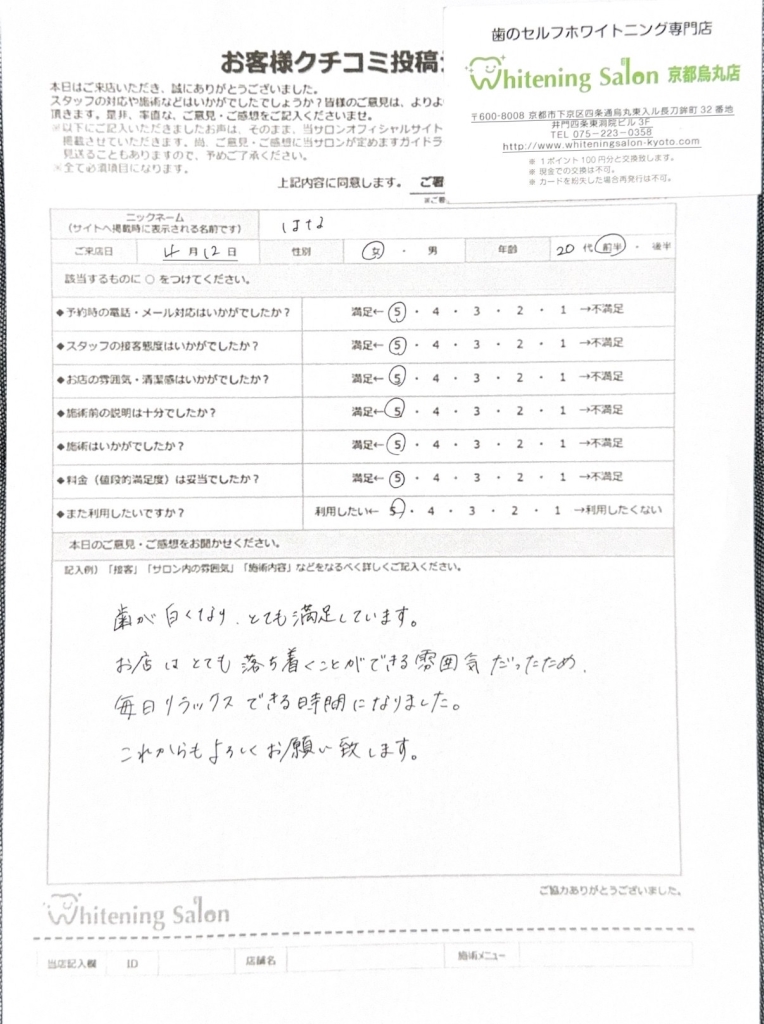 歯のセルフホワイトニング専門店
Whitening Salon 京都烏丸店
〒600-8008 京都市下京区四条通烏丸東入ル長刀鉾町 32 番地
井門四条東洞院ビル 3F
TEL 075-223-0358
http://www.whiteningsalon-kyoto.com
※ 1ポイント100円分と交換致します。
※ 現金での交換は不可。
※ カードを紛失した場合再発行は不可。
お客様クチコミ投稿
本日はご来店いただき、誠にありがとうございました。
スタッフの対応や施術などはいかがでしたでしょうか？皆様のご意見は、よりよ
頂きます。是非、率直な、ご意見・ご感想をご記入くださいませ。
※以下にご記入いただきましたお声は、そのまま、当サロンオフィシャルサイト
掲載させていただきます。尚、ご意見・ご感想に当サロンが定めますガイドラ
見送ることもありますので、予めご了承ください。
※全て必須項目になります。
上記内容に同意します。 ご署
ニックネーム
（サイトへ掲載時に表示される名前です） はな
ご来店日 4 月 12 日 性別 女 ・ 男 年齢 20 代 前半 ・ 後半
該当するものに ○ をつけてください。
◆予約時の電話・メール対応はいかがでしたか？ 満足← 5 ・ 4 ・ 3 ・ 2 ・ 1 →不満足
◆スタッフの接客態度はいかがでしたか？ 満足← 5 ・ 4 ・ 3 ・ 2 ・ 1 →不満足
◆お店の雰囲気・清潔感はいかがでしたか？ 満足← 5 ・ 4 ・ 3 ・ 2 ・ 1 →不満足
◆施術前の説明は十分でしたか？ 満足← 5 ・ 4 ・ 3 ・ 2 ・ 1 →不満足
◆施術はいかがでしたか？ 満足← 5 ・ 4 ・ 3 ・ 2 ・ 1 →不満足
◆料金（値段的満足度）は妥当でしたか？ 満足← 5 ・ 4 ・ 3 ・ 2 ・ 1 →不満足
◆また利用したいですか？ 利用したい← 5 ・ 4 ・ 3 ・ 2 ・ 1 →利用したくない
本日のご意見・ご感想をお聞かせください。
記入例）「接客」「サロン内の雰囲気」「施術内容」などをなるべく詳しくご記入ください。
歯が白くなり、とても満足しています。
お店はとても落ち着くことができる雰囲気だったため、
毎日リラックスできる時間になりました。
これからもよろしくお願い致します。
ご協力ありがとうございました。
Whitening Salon
当店記入欄 ID 店舗名 施術メニュー